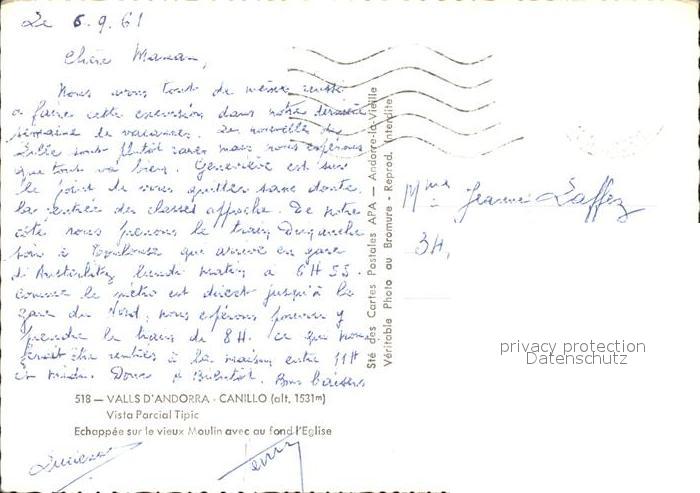 Le 6.9.61
Chère Maman,
Nous avons tout de même réussi
a faire cette excursion dans notre dernière
semaine de vacances. Les nouvelles de
Lille sont plutôt rares mais nous espérons
que tout va bien. Geneviève est sur
le point de vous quitter sans doute,
la rentrée des classes approche. De notre
côté nous prenons le train Dimanche
soir à Toulouse qui arrive en gare
d'Austerlitz lundi matin a 6H55.
comme le métro est direct jusqu'à la
gare du Nord, nous espérons pouvoir y
prendre le train de 8H. ce qui nous
ferait être rentrés à la maison entre 11H
et midi. Donc à Bientôt. Bons baisers
518 — VALLS D'ANDORRA - CANILLO (alt. 1531m)
Vista Parcial Tipic
Echappée sur le vieux Moulin avec au fond l'Eglise
Sté des Cartes Postales APA — Andorre-la-Vieille
Véritable Photo au Bromure - Reprod. Interdite
Mme Jeanne Laffez
34,
privacy protection
Datenschutz